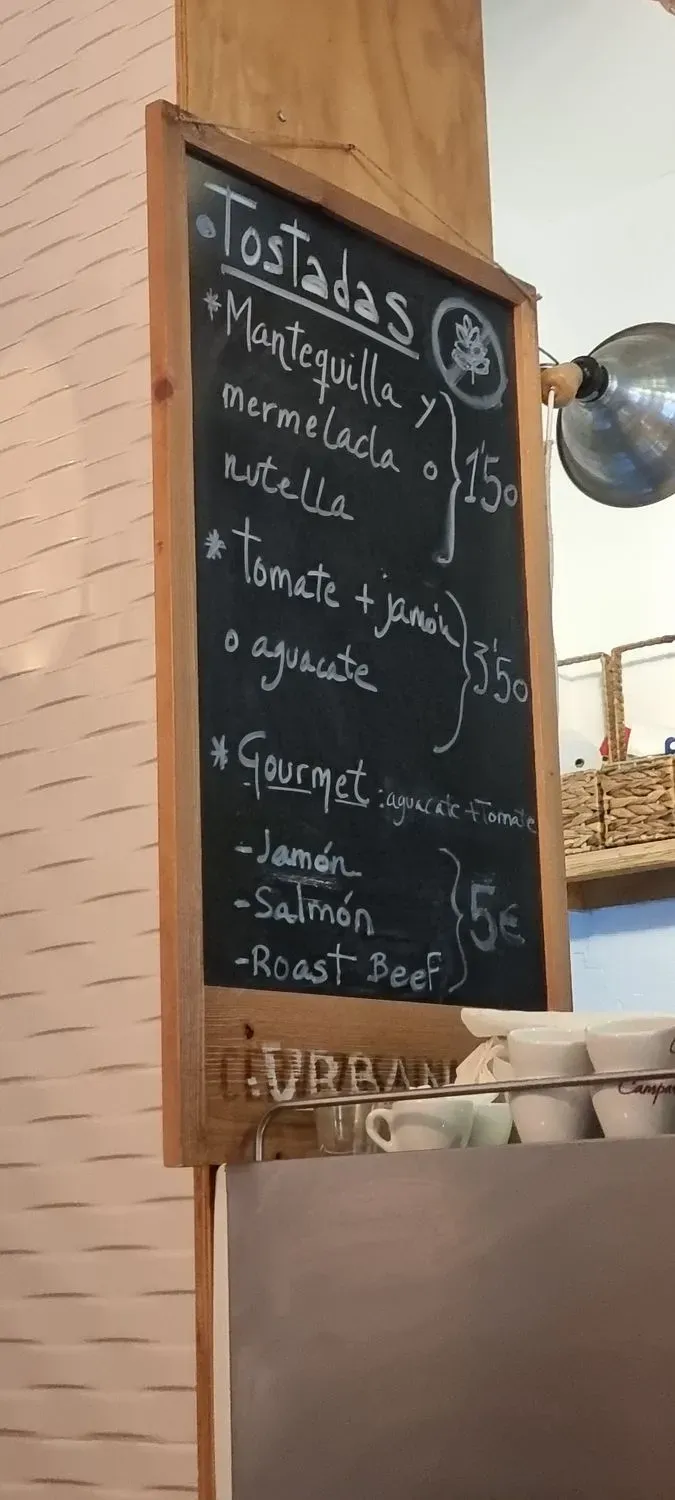 • Tostadas
* Mantequilla y
mermelada o
nutella
1'50
* tomate + jamón
o aguacate
3'50
* Gourmet : aguacate + Tomate
- Jamón
- Salmón
- Roast Beef
5€
URBAN